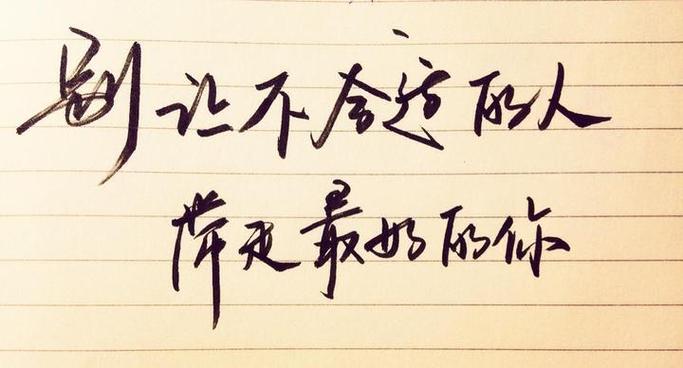 别让不合适的人
带走最好的你